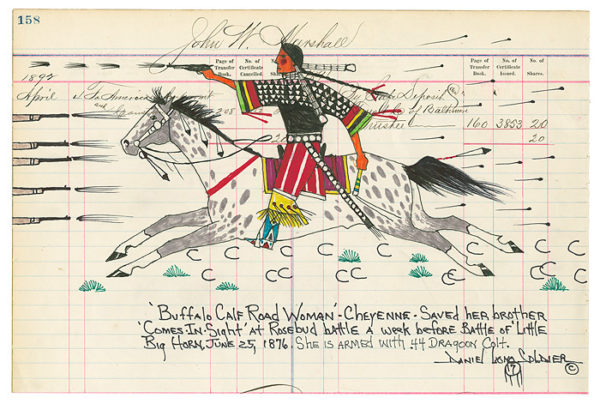 158
John W. Marshall
Page of Transfer Book. No. of Certificate Cancelled. No. of Page of Transfer Book. No. of Certificate Issued. No. of Shares.
1892
April To American Deposit
and 208 of Baltimore
Trustee 160 3853 20
20
'Buffalo Calf Road Woman' - Cheyenne - Saved her brother
'Comes In Sight' at Rosebud battle a week before Battle of Little
Big Horn, June 25, 1876. She is armed with .44 Dragoon Colt.
Daniel Long Soldier
©